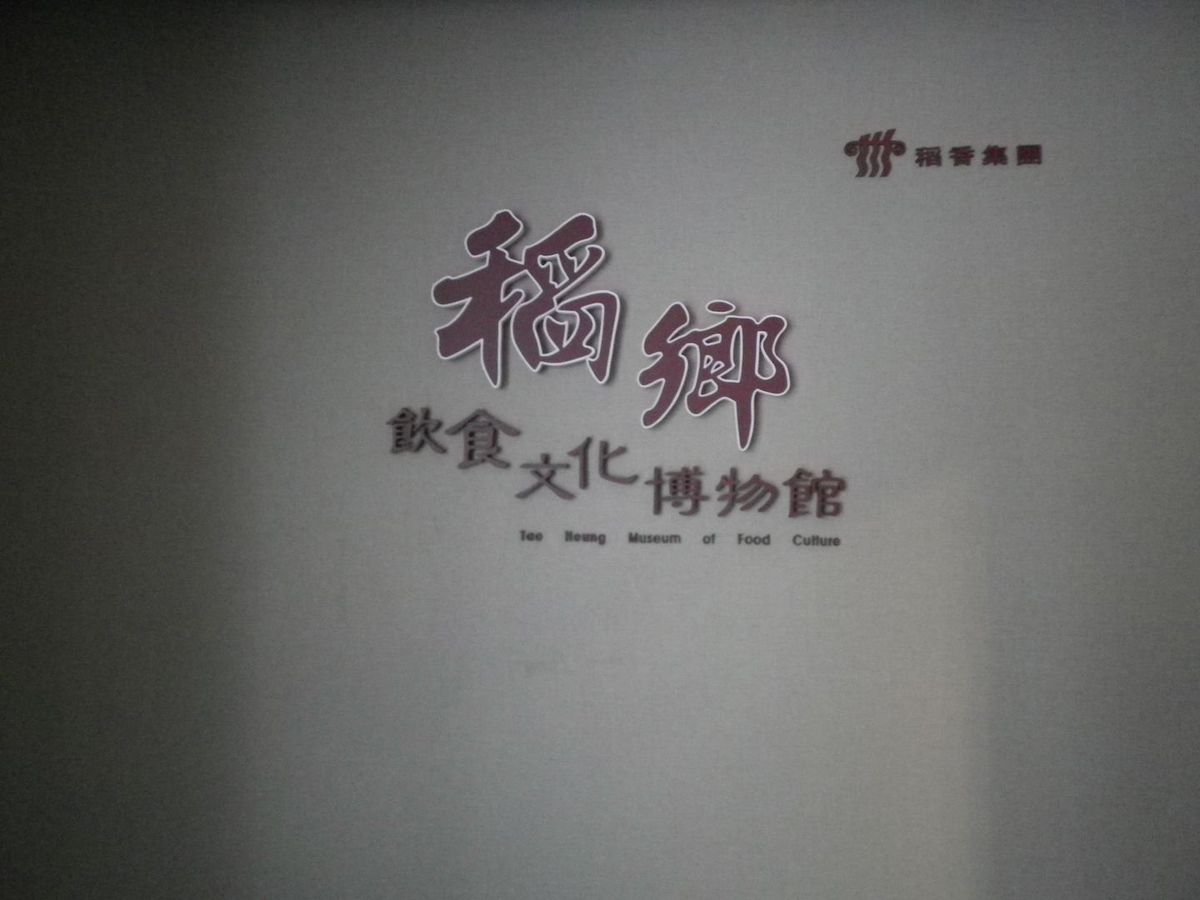 稻香集團
稻鄉
飲食文化博物館
Tao Heung Museum of Food Culture